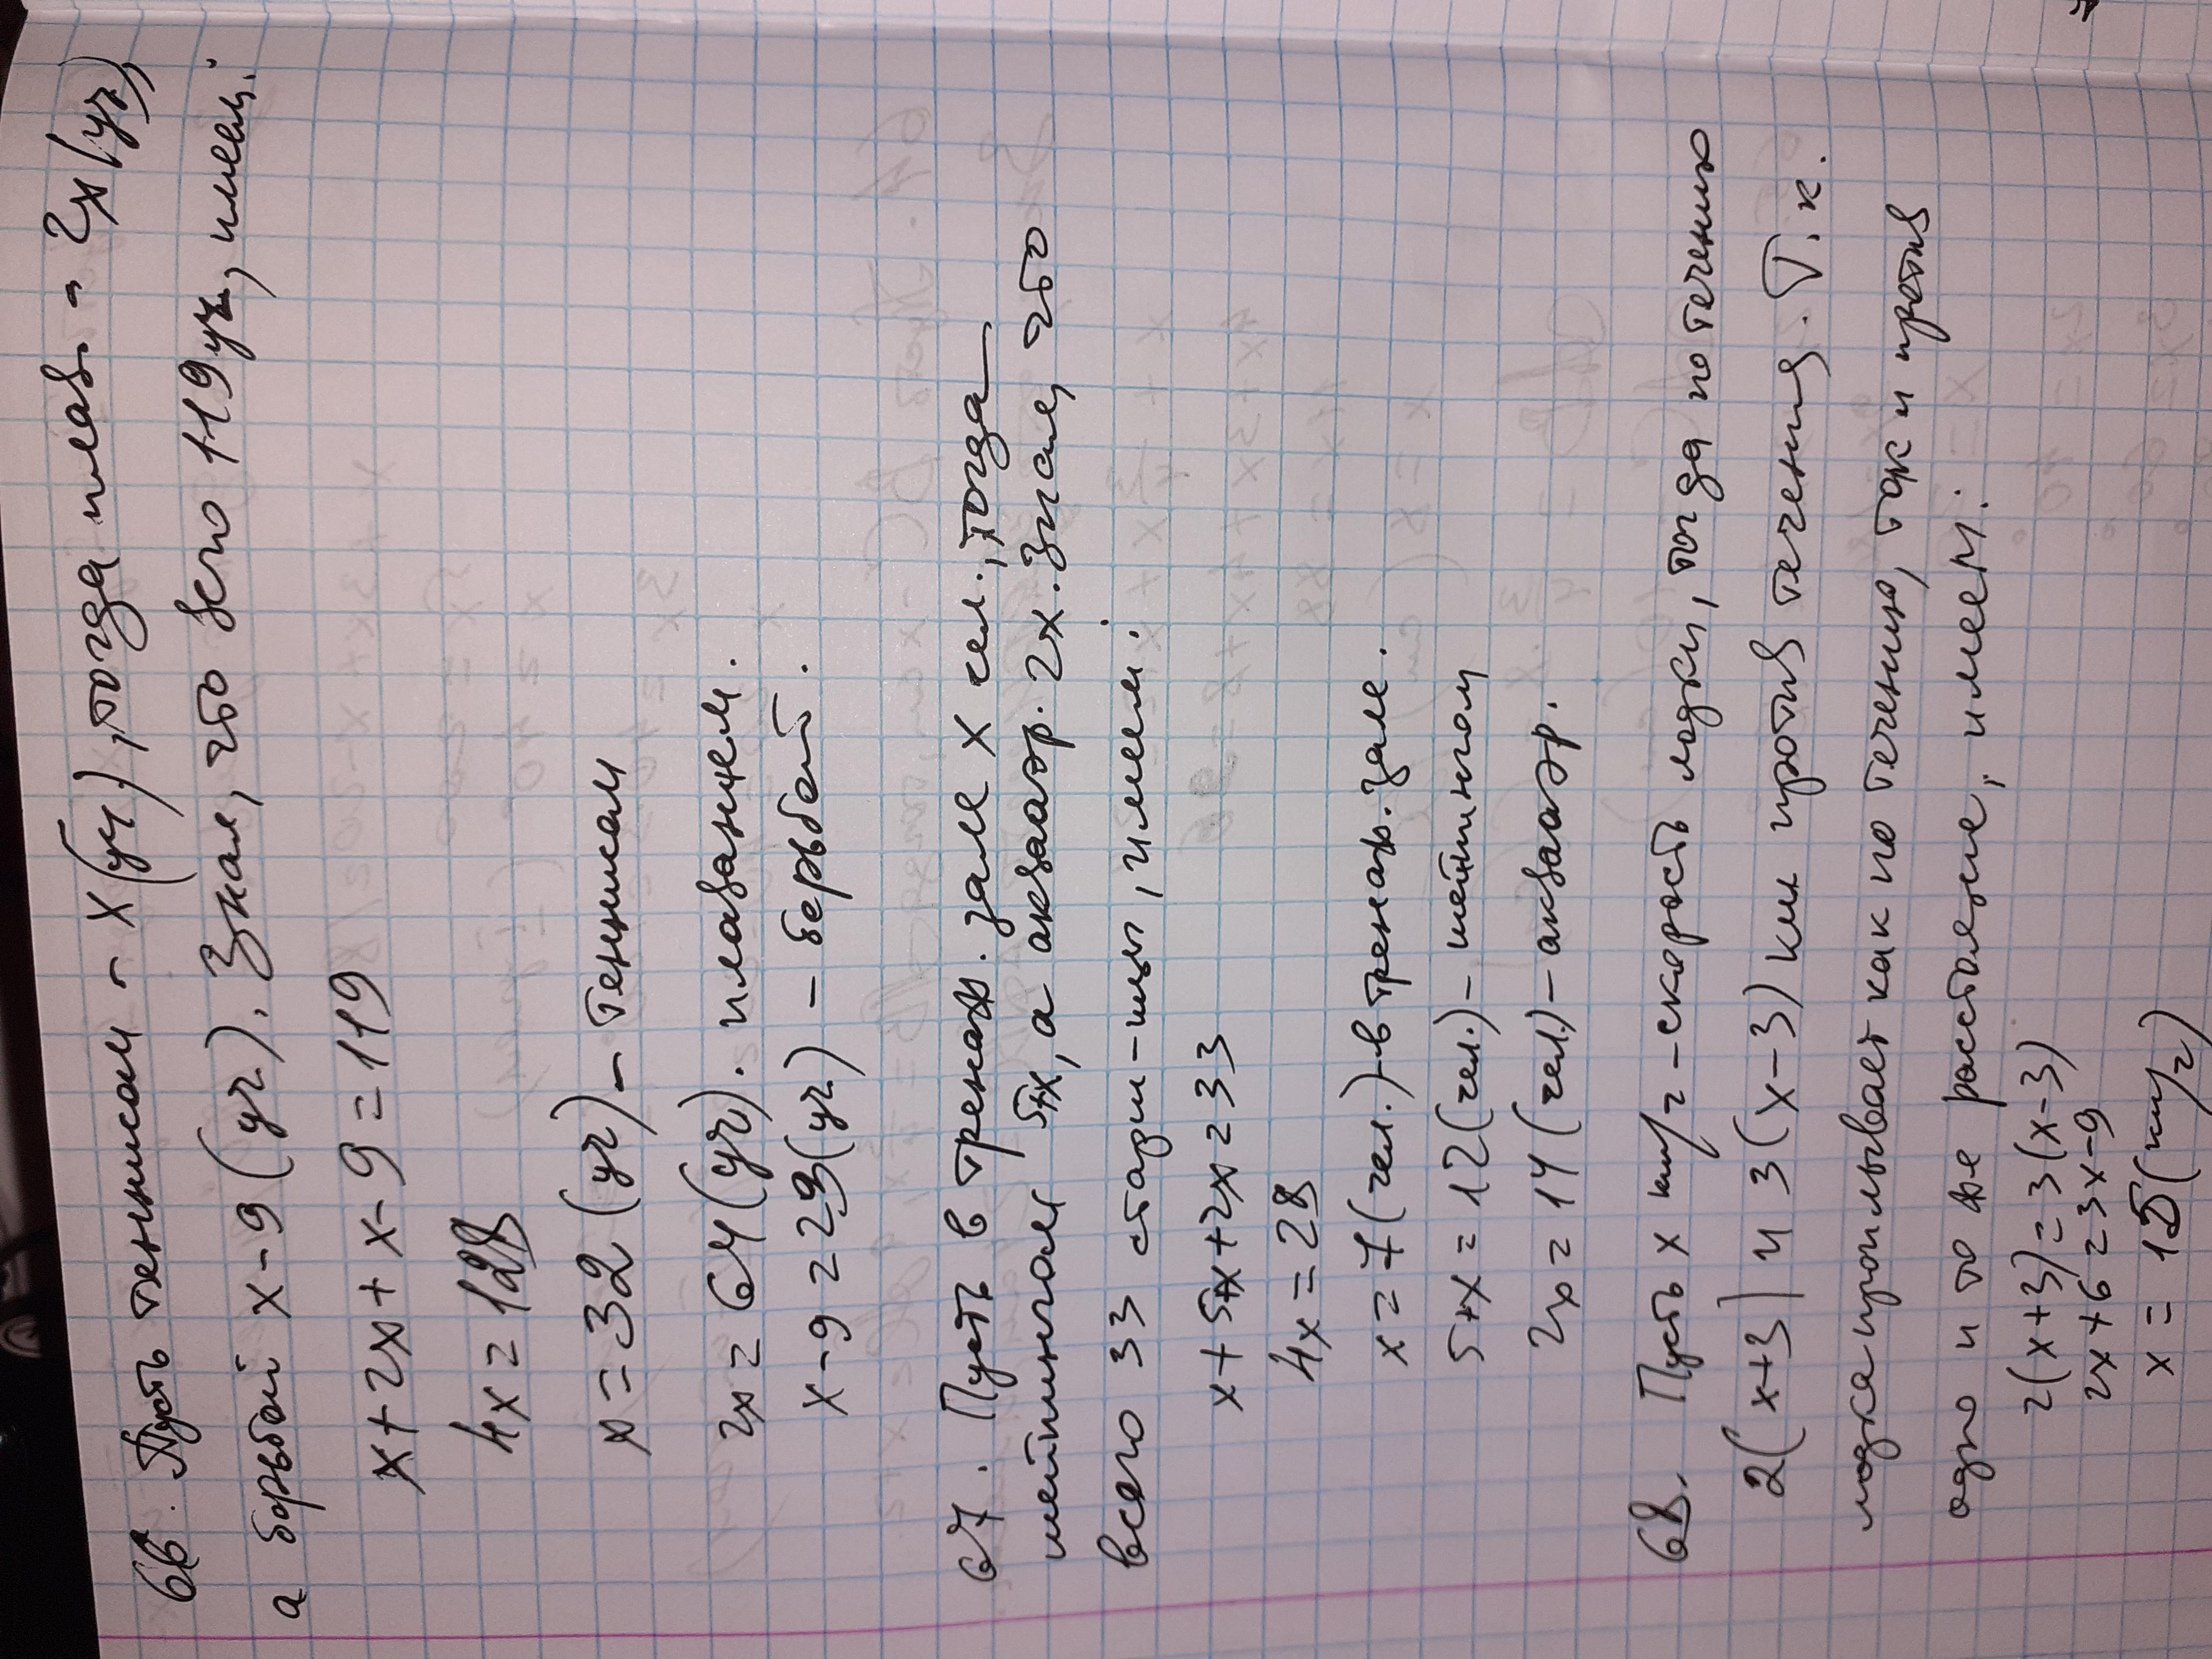 66. Пусть теннисом - x (уч), тогда плав. - 2x (уч),
а борьбой x-9 (уч). Зная, что всего 119 уч, имеем:
x+2x+x-9=119
4x=128
x=32 (уч) - теннисом
2x=64 (уч). плаванием.
x-9=23 (уч) - борьбой.
67. Пусть в тренаж. зале x чел., тогда
шейпингом 5+x, а аквааэр. 2x. Зная, что
всего 33 старш-цы, имеем:
x+5+x+2x=33
4x=28
x=7 (чел.) - в тренаж. зале.
5+x=12 (чел.) - шейпингом
2x=14 (чел.) - аквааэр.
68. Пусть x км/ч - скорость лодки, тогда по течению
2(x+3) и 3(x-3) км против течения. Т.к.
лодка проплывает как по течению, так и против
одно и то же расстояние, имеем:
2(x+3)=3(x-3)
2x+6=3x-9
x=15 (км/ч)